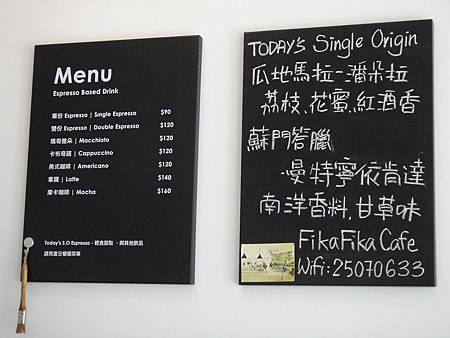 Menu
Espresso Based Drink
單份 Espresso | Single Espresso $90
雙份 Espresso | Double Espresso $120
瑪奇雅朵 | Macchiato $120
卡布奇諾 | Cappuccino $120
美式咖啡 | Americano $120
拿鐵 | Latte $140
摩卡咖啡 | Mocha $160
Today's S.O Espresso、輕食甜點、與其他飲品
請見當日櫃檯菜單
TODAY's Single Origin
瓜地馬拉-潘朵拉
荔枝、花蜜、紅酒香
蘇門答臘
-曼特寧依肯達
南洋香料,甘草味
FikaFika Cafe
Wifi: 25070633